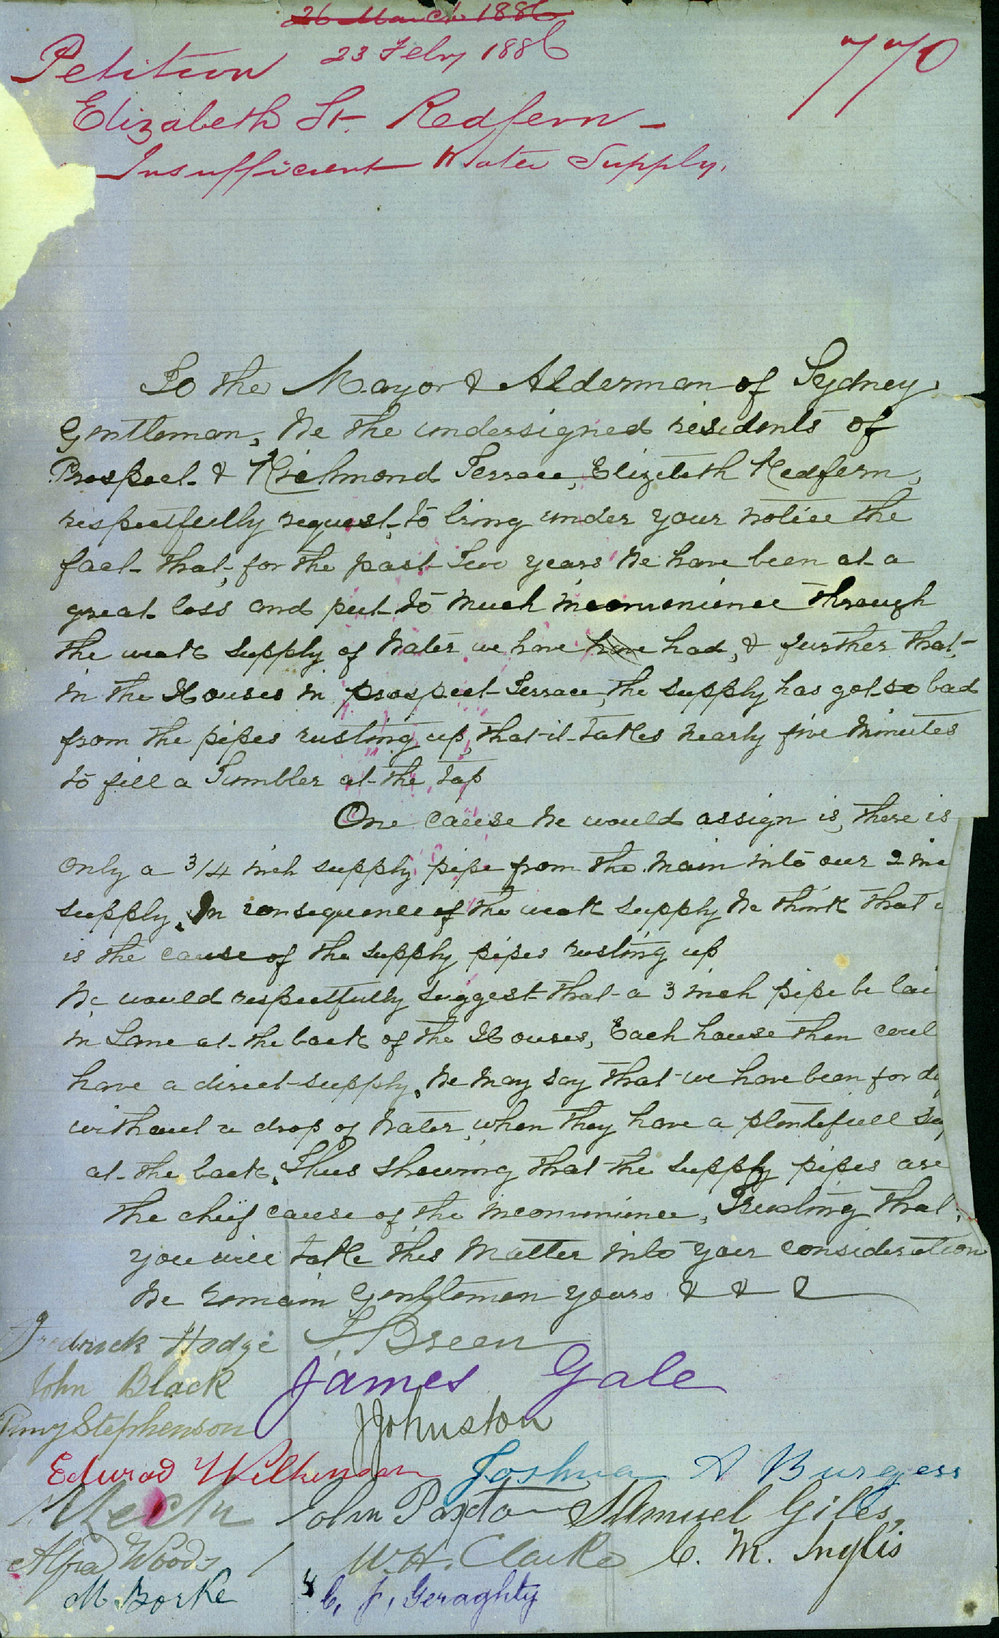 26 March 1886
23 Febry 1886
770
Petition
Elizabeth St. Redfern -
Insufficient Water Supply.
To the Mayor & Alderman of Sydney.
Gentleman, We the undersigned residents of
Prospect & Richmond Terrace, Elizebeth Redfern,
respectfully request to bring under your notice the
fact that, for the past Two years We have been at a
great loss and put to much inconvenience through
the weak supply of Water we have have had, & further that
in the Houses in prospect Terrace, the supply has got so bad
from the pipes rusting up, that it takes nearly five minutes
to fill a Tumbler at the tap
One cause We would assign is, there is
only a 3/4 inch supply pipe from the main into our 2 inc
supply. In consequence of the weak supply We think that
is the cause of the supply pipes rusting up
We would respectfully suggest that a 3 inch pipe be lai
in Lane at the back of the Houses, Each house then coul
have a direct supply. We may say that we have been for da
without a drop of Water, when they have a plentifull su
at the back. Thus showing that the supply pipes are
the chief cause of the inconvenience, Trusting that
you will take this matter into your consideration
We remain Gentlemen yours & & &
Fredrick Hodge T. Breen
John Black James Gale
Stephenson J Johnston
Edward Wilkinson Joshua A Burgess
John Paxton Samuel Giles,
Alfred Woods W. H. Clarke C. M. Inglis
M. Borke C. J. Geraghty